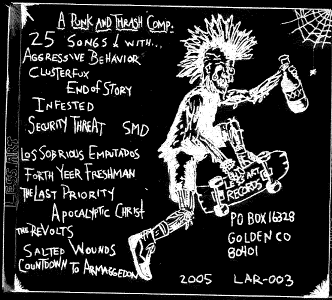 A PUNK AND THRASH COMP.
25 SONGS! WITH...
AGGRESSIVE BEHAVIOR
CLUSTERFUX
END OF STORY
INFESTED
SECURITY THREAT SMD
LOS SOBRIOUS EMPUTADOS
FORTH YEER FRESHMAN
THE LAST PRIORITY
APOCALYPTIC CHRIST
THE REVOLTS
SALTED WOUNDS
COUNTDOWN TO ARMAGEDDON
LESS ART
RECORDS
PO BOX 16328
GOLDEN CO
80401
2005 LAR-003
LESS ART